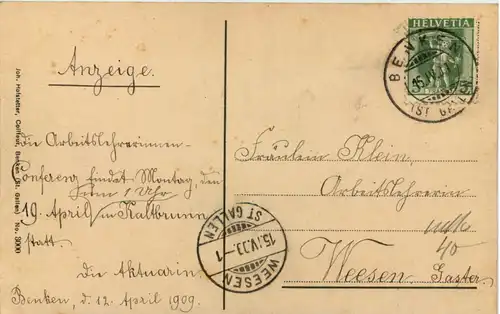 Joh. Hofstetter, Coiffeur, Benken (St. Gallen) No. 3000
Anzeige.
die Arbeitslehrerinnen-
Conferenz findet Montag, den
19. April 1 Uhr in Kaltbrunn
statt.
Die Aktuarin.
Benken, d. 12. April 1909.
HELVETIA
BENKEN
15.IV.09
(ST. GALLEN)
Fräulein Klein,
Arbeitslehrerin
40
Weesen, Gaster.
ST GALLEN
15.IV.09.-1
WEESEN